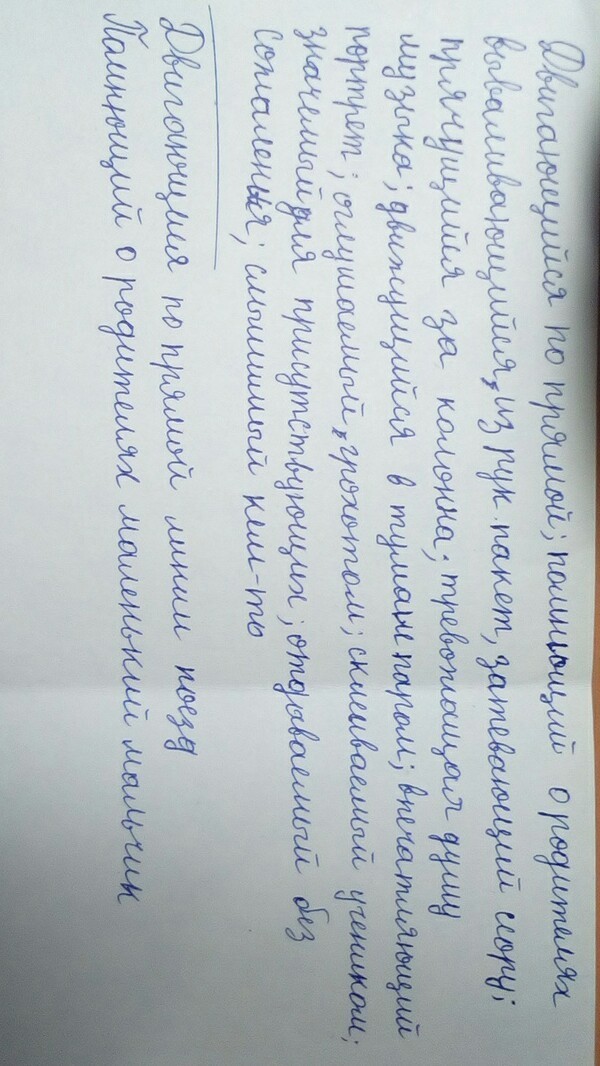 Двигающийся по прямой; помнющий о родителях
вываливающийся, из рук пакет, затевающий ссору;
прячущийся за колонна; тревотащая душу
музыка; движущийся в тумане паром; впечатляющий
портрет; оглушаемый, грохотом; склеиваемый учеником;
значемый для присутствующих; отдаваемый без
сожаленья; слышимый кем-то
Двигающийся по прямой линии поезд
Памнющий о родителях маленький мальчик